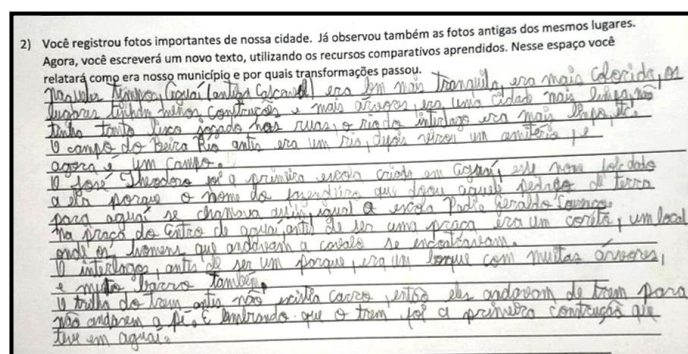 2) Você registrou fotos importantes de nossa cidade. Já observou também as fotos antigas dos mesmos lugares.
Agora, você escreverá um novo texto, utilizando os recursos comparativos aprendidos. Nesse espaço você
relatará como era nosso município e por quais transformações passou.
Naqueles tempos, Aguaí (antiga Cascavel) era bem mais tranquila, era mais colorida, os
lugares tinham menos contruções e mais árvores, era uma cidade mais limpa, não
tinha tanto lixo jogado nas ruas, o rio do interlago era mais limpo, etc.
O campo do Beira Rio antis era um rio, depois virou um cemitério, e
agora é um campo.
O José Theodoro foi a primeira escola criada em aguaí, esse nome foi dado
a ela porque o nome do fazendeiro que doou aquele pedaço de terra
para aguaí se chamava assim, igual a escola Padre Geraldo Lourenço.
Na praça do centro de aguaí, antis de ser uma praça era um coreto, um local
onde os homens que andavam a cavalo se encontravam.
O interlagos, antis de ser um porque, era um bosque com muitas árvores,
e muito barro também.
O trilho do trem antis não existia carro, então eles andavam de trem para
não andarem a pé. E lembrando que o trem foi a primeira contrução que
teve em aguaí.